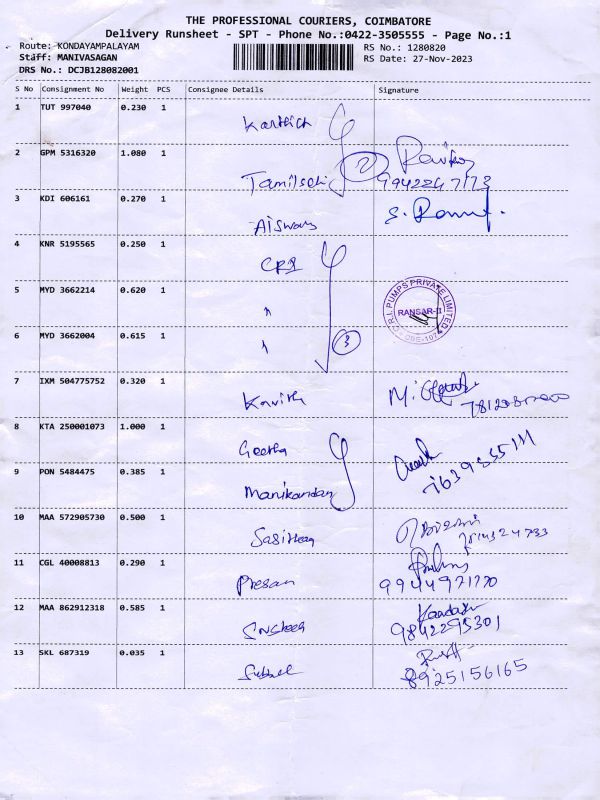 THE PROFESSIONAL COURIERS, COIMBATORE
Delivery Runsheet - SPT - Phone No.:0422-3505555 - Page No.:1
Route: KONDAYAMPALAYAM RS No.: 1280820
Staff: MANIVASAGAN RS Date: 27-Nov-2023
DRS No.: DCJB128082001
S No Consignment No Weight PCS Consignee Details Signature
1 TUT 997040 0.230 1
Karthick
2 GPM 5316320 1.080 1
Tamilselvi 2
3 KDI 606161 0.270 1
Aiswary
4 KNR 5195565 0.250 1
CRI
5 MYD 3662214 0.620 1
C.R.I. PUMPS PRIVATE LIMITED
RANSAR-II
6 MYD 3662004 0.615 1
3
7 IXM 504775752 0.320 1
Kavitha
8 KTA 250001073 1.000 1
Geetha
9 PON 5484475 0.385 1
Manikandan
10 MAA 572905730 0.500 1
11 CGL 40008813 0.290 1
9944971770
12 MAA 862912318 0.585 1
9842295301
13 SKL 687319 0.035 1
8925156165